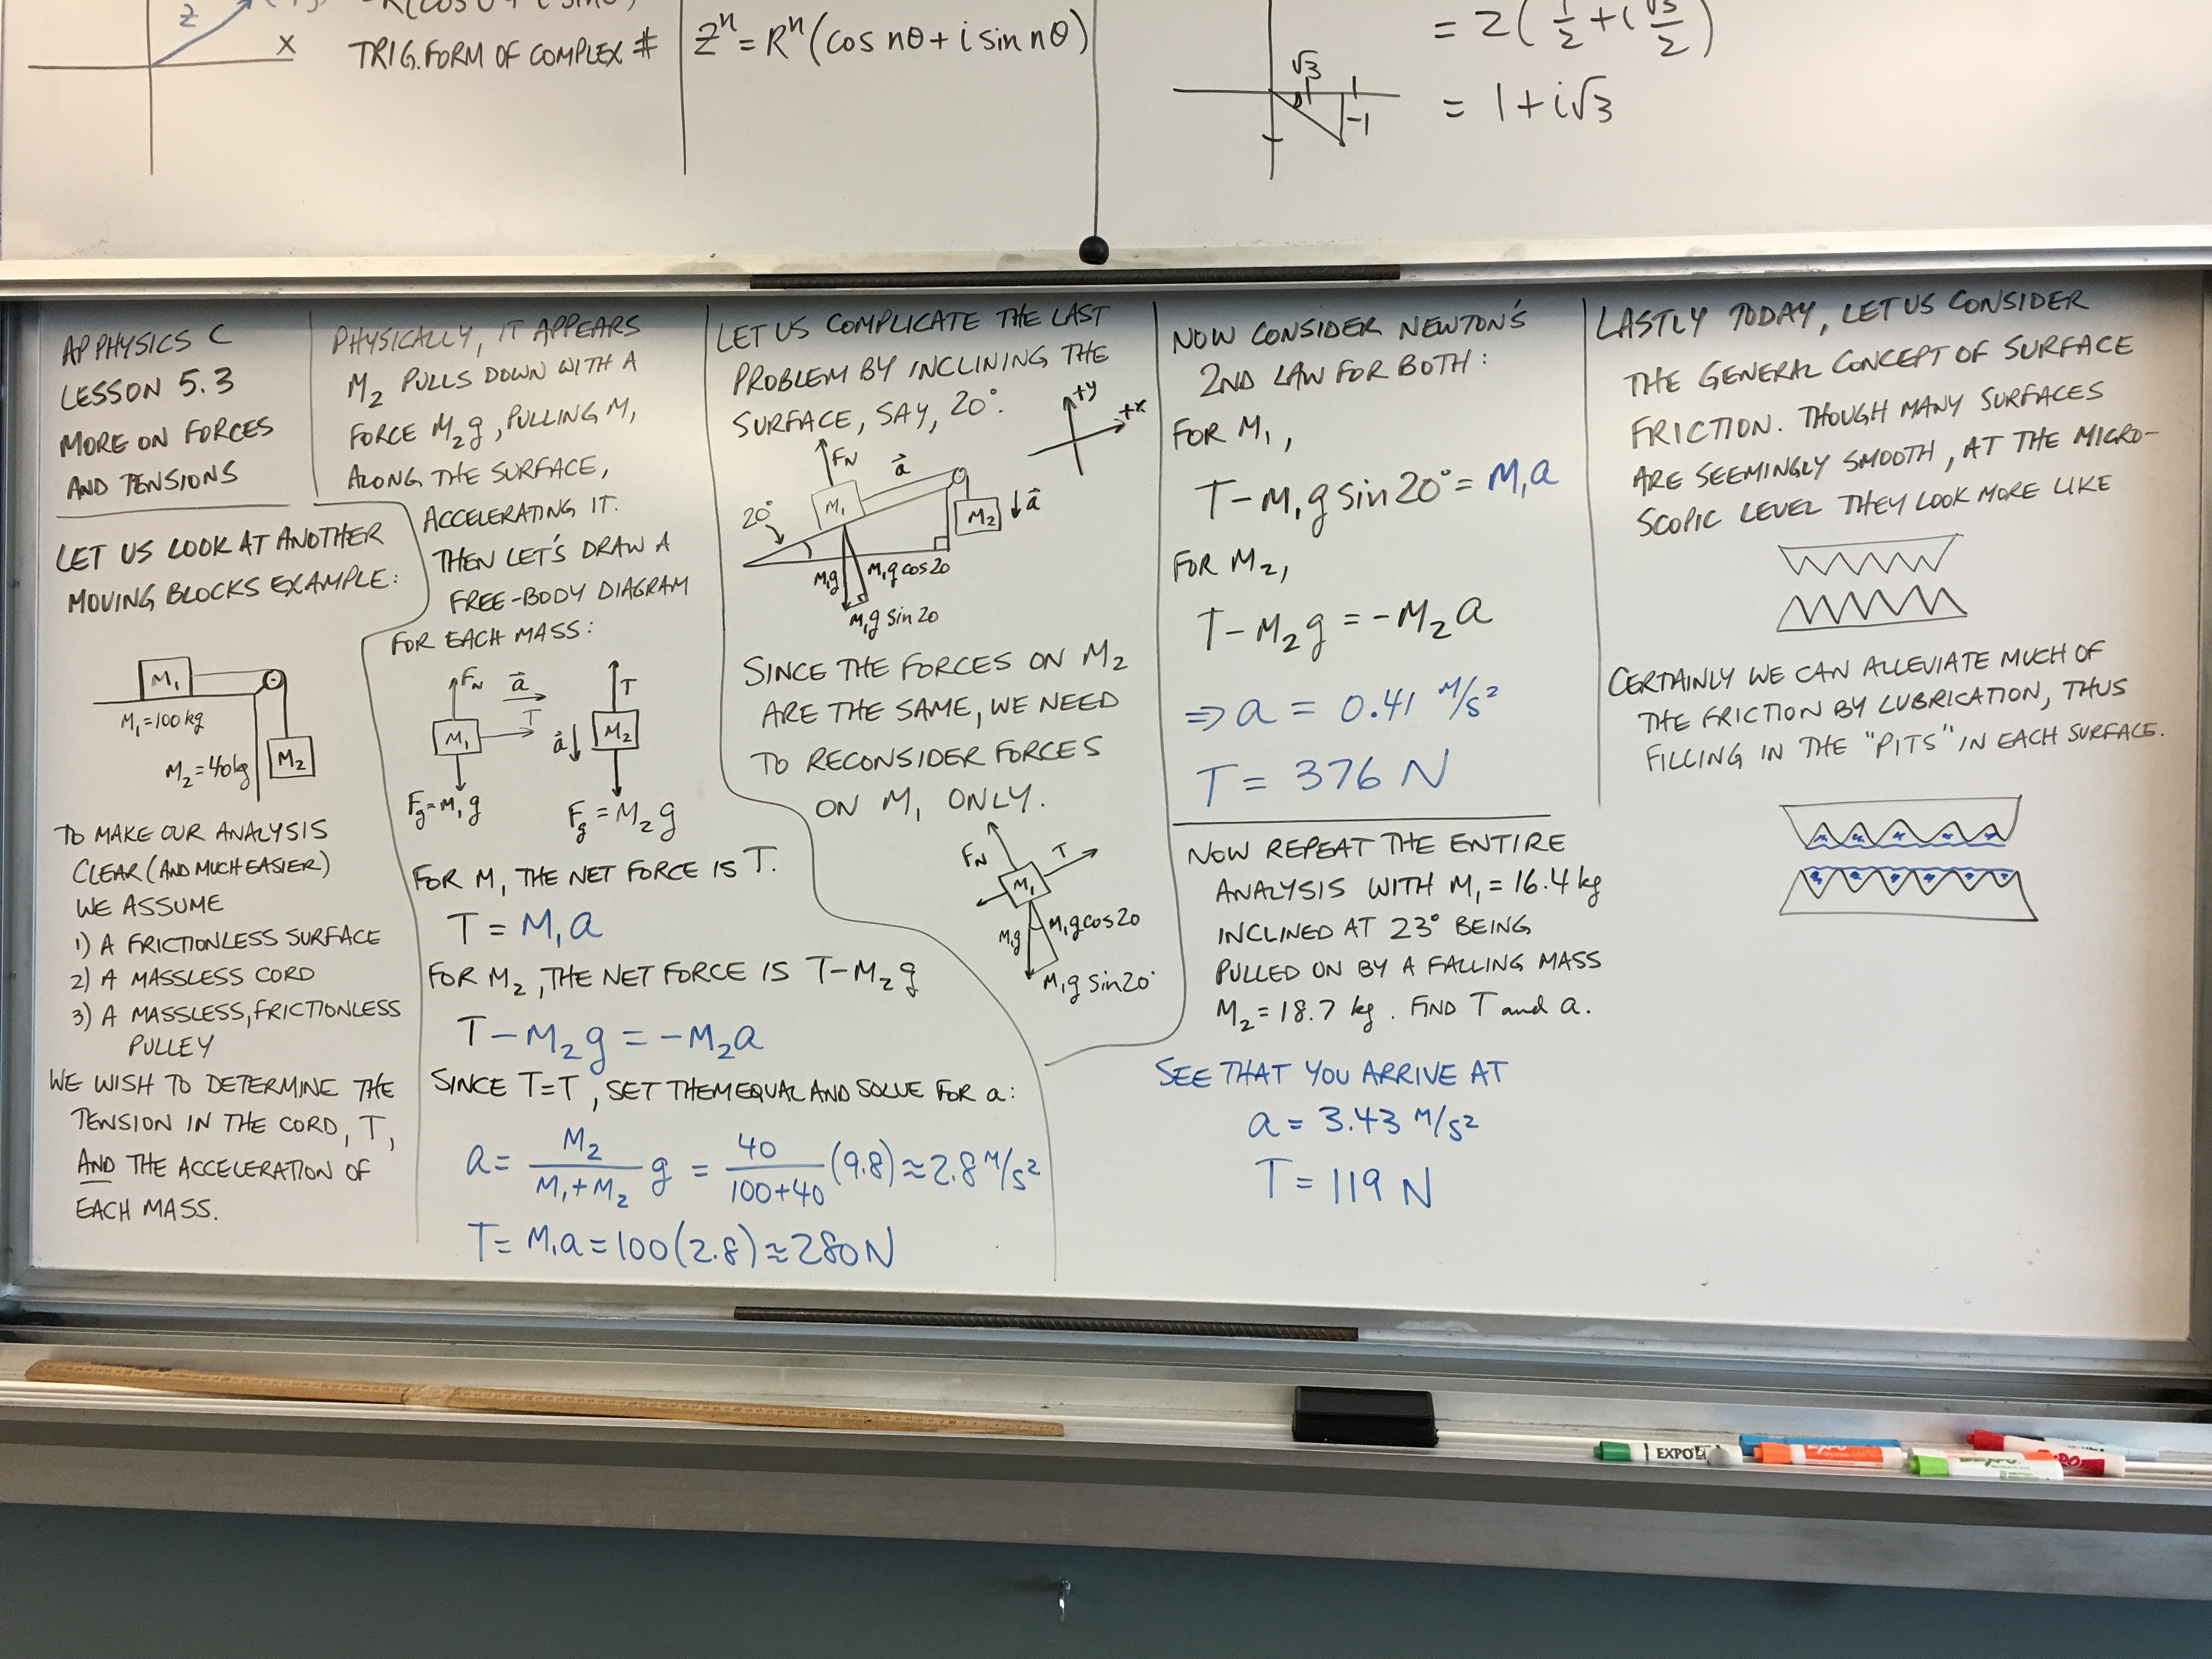 TRIG. FORM OF COMPLEX #
Z
X
Zⁿ = Rⁿ(cos nθ + i sin nθ)
= 2(1/2 + i √3/2)
= 1 + i√3
√3
1
-1
AP PHYSICS C
LESSON 5.3
MORE ON FORCES
AND TENSIONS
LET US LOOK AT ANOTHER
MOVING BLOCKS EXAMPLE:
M₁
M₁ = 100 kg
M₂ = 40 kg
M₂
TO MAKE OUR ANALYSIS
CLEAR (AND MUCH EASIER)
WE ASSUME
1) A FRICTIONLESS SURFACE
2) A MASSLESS CORD
3) A MASSLESS, FRICTIONLESS
PULLEY
WE WISH TO DETERMINE THE
TENSION IN THE CORD, T,
AND THE ACCELERATION OF
EACH MASS.
PHYSICALLY, IT APPEARS
M₂ PULLS DOWN WITH A
FORCE M₂g, PULLING M₁
ALONG THE SURFACE,
ACCELERATING IT.
THEN LET'S DRAW A
FREE-BODY DIAGRAM
FOR EACH MASS:
F_N
a⃗
T
M₁
F_g = M₁g
T
a⃗
M₂
F_g = M₂g
FOR M₁ THE NET FORCE IS T.
T = M₁a
FOR M₂, THE NET FORCE IS T - M₂g
T - M₂g = -M₂a
SINCE T=T, SET THEM EQUAL AND SOLVE FOR a:
a = M₂/(M₁+M₂) g = 40/(100+40) (9.8) ≈ 2.8 M/s²
T = M₁a = 100(2.8) ≈ 280N
LET US COMPLICATE THE LAST
PROBLEM BY INCLINING THE
SURFACE, SAY, 20°.
+y
+x
F_N
a⃗
M₁
20°
M₂
a⃗
M₁g
M₁g cos 20
M₁g sin 20
SINCE THE FORCES ON M₂
ARE THE SAME, WE NEED
TO RECONSIDER FORCES
ON M₁ ONLY.
F_N
T
M₁
M₁g
M₁g cos 20
M₁g sin 20°
NOW CONSIDER NEWTON'S
2ND LAW FOR BOTH:
FOR M₁,
T - M₁g sin 20° = M₁a
FOR M₂,
T - M₂g = -M₂a
⇒ a = 0.41 M/s²
T = 376 N
NOW REPEAT THE ENTIRE
ANALYSIS WITH M₁ = 16.4 kg
INCLINED AT 23° BEING
PULLED ON BY A FALLING MASS
M₂ = 18.7 kg. FIND T and a.
SEE THAT YOU ARRIVE AT
a = 3.43 M/s²
T = 119 N
LASTLY TODAY, LET US CONSIDER
THE GENERAL CONCEPT OF SURFACE
FRICTION. THOUGH MANY SURFACES
ARE SEEMINGLY SMOOTH, AT THE MICRO-
SCOPIC LEVEL THEY LOOK MORE LIKE
CERTAINLY WE CAN ALLEVIATE MUCH OF
THE FRICTION BY LUBRICATION, THUS
FILLING IN THE "PITS" IN EACH SURFACE.
EXPO